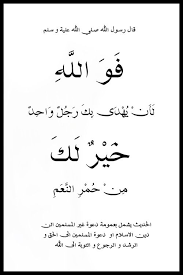 قال رسول الله صلي الله علية و سلم
فَوَ اللَّهِ
لَأَنْ يُهْدَى بِكَ رَجُلٌ وَاحِدٌ
خَيْرٌ لَكَ
مِنْ حُمْرِ النَّعَمِ
الحديث يشمل بعمومة دعوة غير المسلمين الى
دين الاسلام او دعوة المسلمين الى الحق و
الرشد و الرجوع و التوبة الى الله